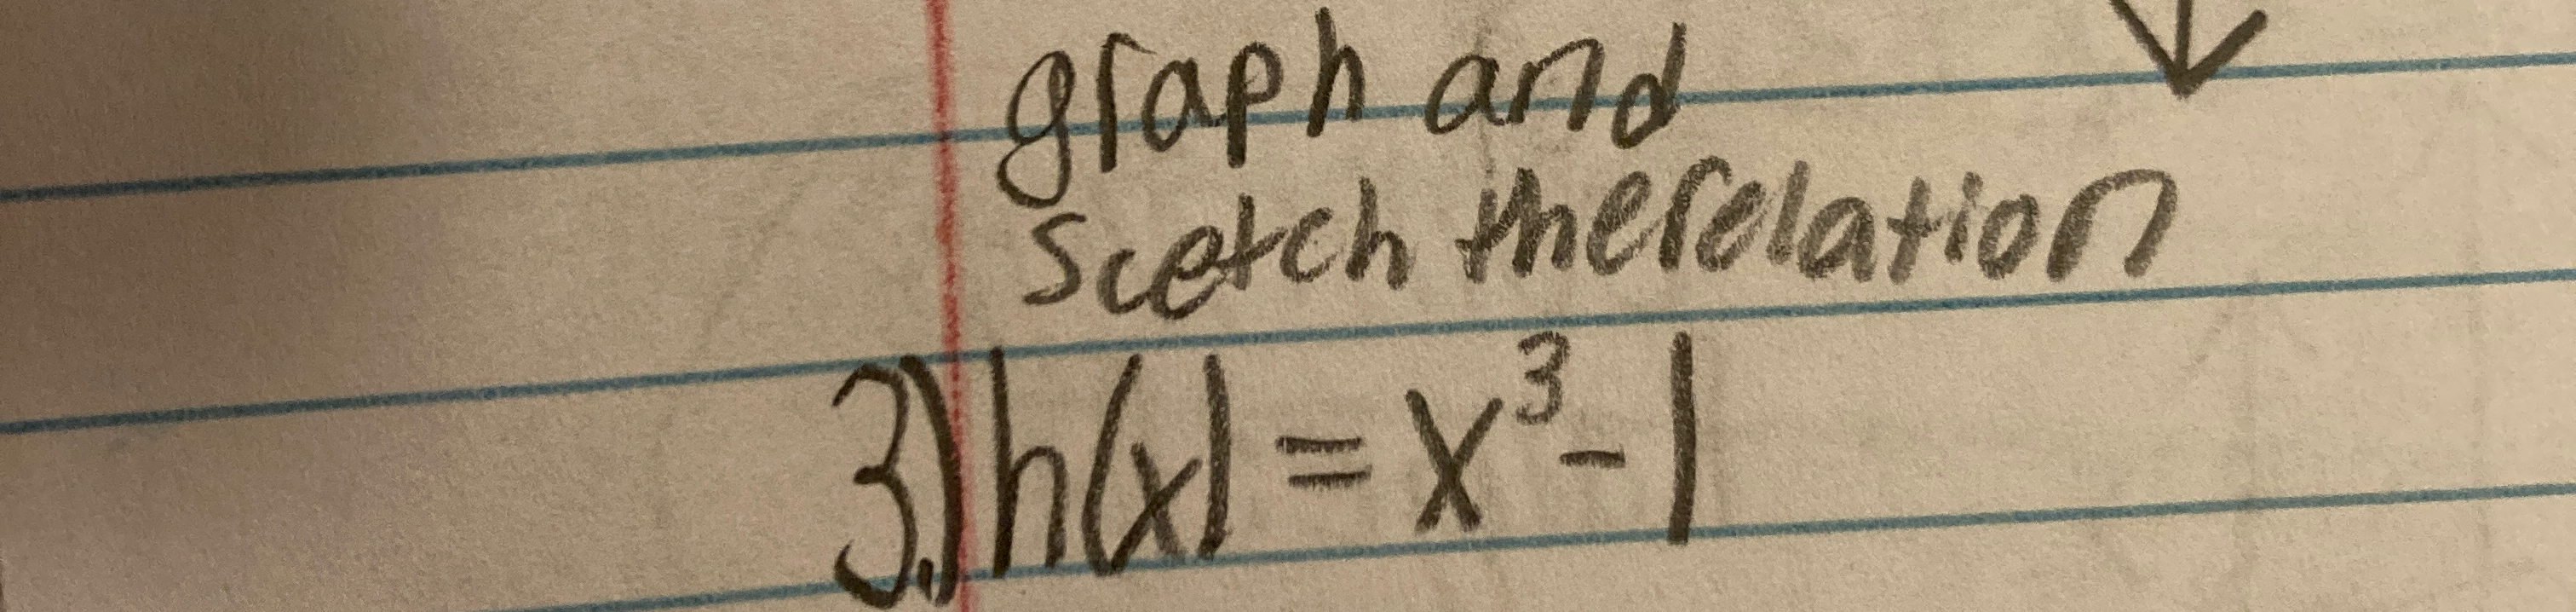 graph and
scetch the relation
3.) h(x) = x³-1